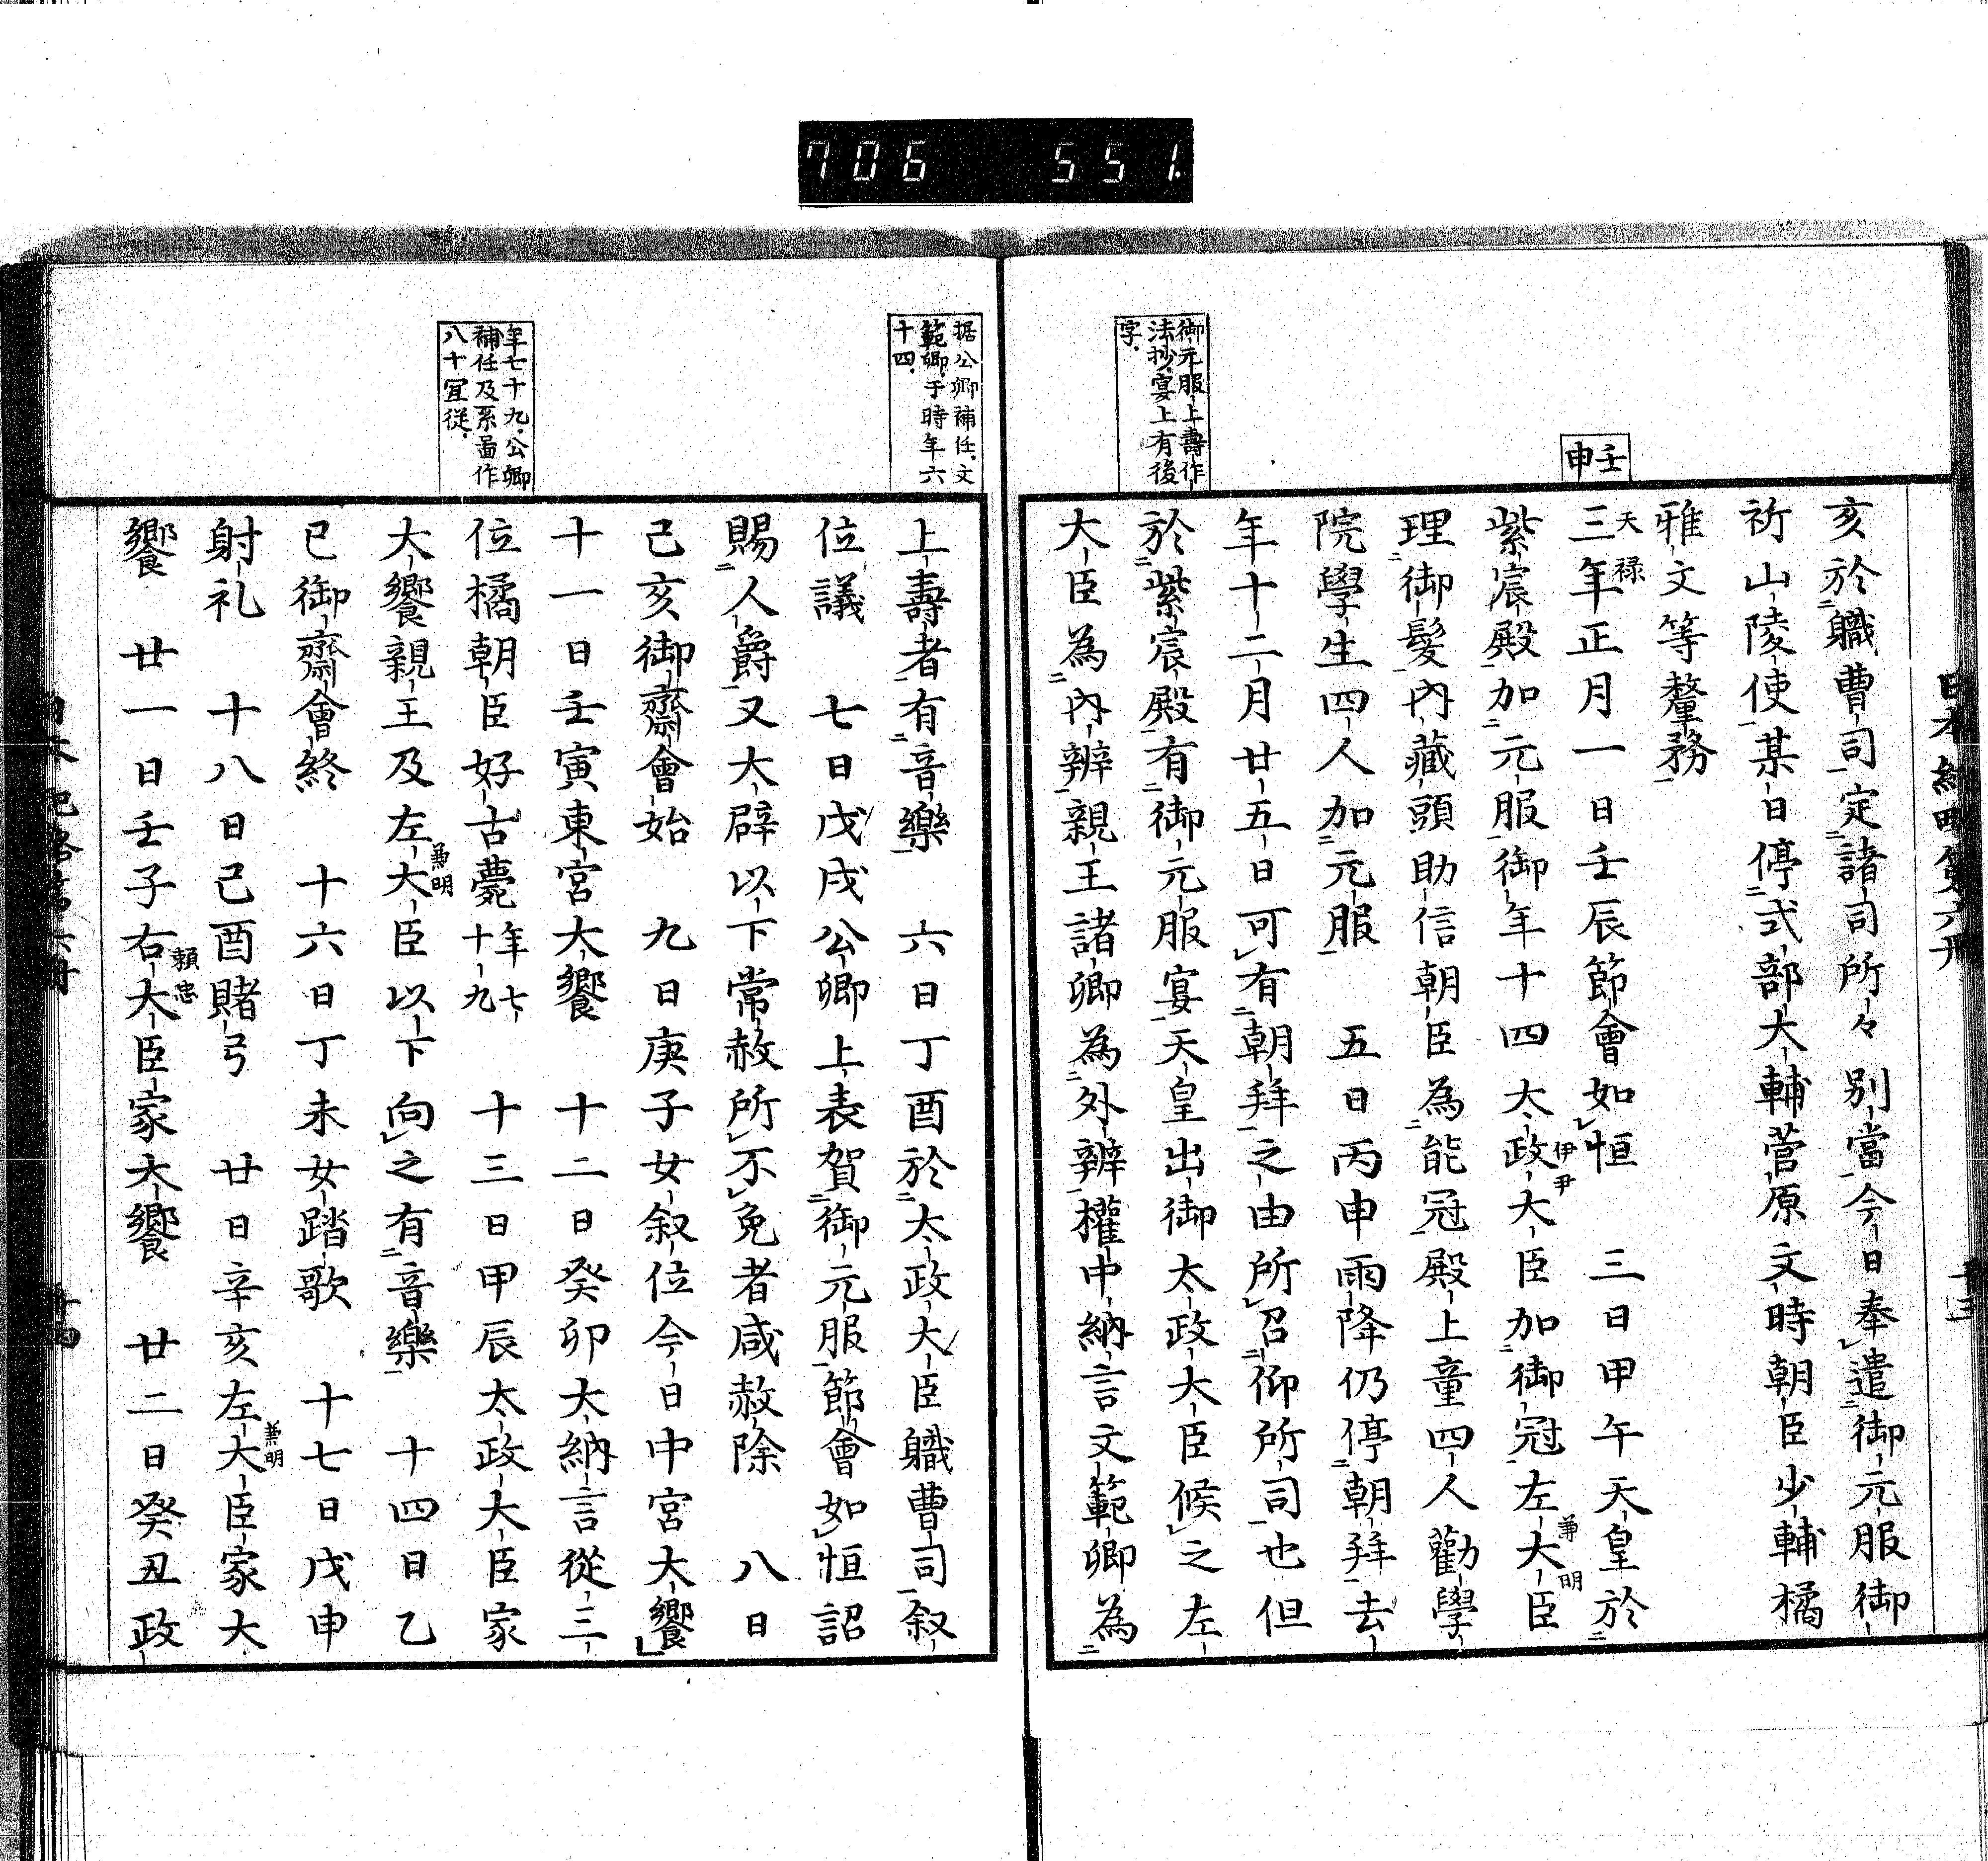 706 551.
御元服上壽作
法抄宴上有後
字.
壬申
亥於職曹司定諸司所々別當今日奉遣御元服御
祈山陵使某日停式部大輔菅原文時朝臣少輔橘
雅文等釐務
天禄
三年正月一日壬辰節會如恒　三日甲午天皇於
紫宸殿加元服御年十四太政大臣加御冠左大臣
伊尹
兼明
理御髮內藏頭助信朝臣為能冠殿上童四人勸學
院學生四人加元服　五日丙申雨降仍停朝拜去
年十二月廿五日可有朝拜之由所召仰所司也但
於紫宸殿有御元服宴天皇出御太政大臣候之左
大臣為內辨親王諸卿為外辨權中納言文範卿為
据公卿補任.文
範卿.于時年六
十四.
年七十九.公卿
補任及系啚作
八十冝從.
上壽者有音樂　六日丁酉於太政大臣職曹司叙
位議　七日戊戌公卿上表賀御元服節會如恒詔
賜人爵又大辟以下常赦所不免者咸赦除　八日
己亥御齋會始　九日庚子女叙位今日中宮大饗
十一日壬寅東宮大饗　十二日癸卯大納言從三
位橘朝臣好古薨年七十九　十三日甲辰太政大臣家
大饗親王及左大臣以下向之有音樂　十四日乙
兼明
巳御齋會終　十六日丁未女踏歌　十七日戊申
射礼　十八日己酉賭弓　廿日辛亥左大臣家大
兼明
饗　廿一日壬子右大臣家大饗　廿二日癸丑政
賴忠